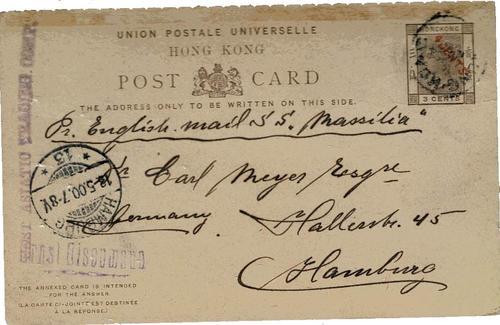 UNION POSTALE UNIVERSELLE
HONG KONG
POST CARD
THE ADDRESS ONLY TO BE WRITTEN ON THIS SIDE.
HONG KONG
3 CENTS
Pr. English mail S.S. "Massilia"
Carl Meyer Esqre
Hallerstr. 45
Germany
Hamburg
HAMBURG
13
13.5.00.7-8V
EAST ASIATIC TRADING
Ernst
THE ANNEXED CARD IS INTENDED
FOR THE ANSWER.
(LA CARTE CI-JOINTE EST DESTINÉE
À LA RÉPONSE)